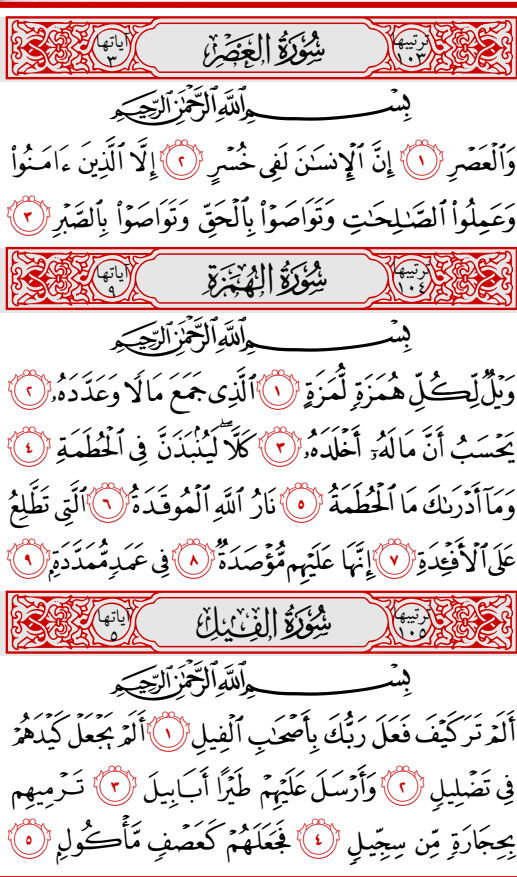 ترتيبها ١٠٣ سُورَةُ العَصۡرِ آياتها ٣
بِسۡمِ ٱللَّهِ ٱلرَّحۡمَٰنِ ٱلرَّحِيمِ
وَٱلۡعَصۡرِ ١ إِنَّ ٱلۡإِنسَٰنَ لَفِي خُسۡرٍ ٢ إِلَّا ٱلَّذِينَ ءَامَنُواْ
وَعَمِلُواْ ٱلصَّٰلِحَٰتِ وَتَوَاصَوۡاْ بِٱلۡحَقِّ وَتَوَاصَوۡاْ بِٱلصَّبۡرِ ٣
ترتيبها ١٠٤ سُورَةُ الهُمَزَةِ آياتها ٩
بِسۡمِ ٱللَّهِ ٱلرَّحۡمَٰنِ ٱلرَّحِيمِ
وَيۡلٞ لِّكُلِّ هُمَزَةٖ لُّمَزَةٍ ١ ٱلَّذِي جَمَعَ مَالٗا وَعَدَّدَهُۥ ٢
يَحۡسَبُ أَنَّ مَالَهُۥٓ أَخۡلَدَهُۥ ٣ كَلَّاۖ لَيُنۢبَذَنَّ فِي ٱلۡحُطَمَةِ ٤
وَمَآ أَدۡرَىٰكَ مَا ٱلۡحُطَمَةُ ٥ نَارُ ٱللَّهِ ٱلۡمُوقَدَةُ ٦ ٱلَّتِي تَطَّلِعُ
عَلَى ٱلۡأَفۡـِٔدَةِ ٧ إِنَّهَا عَلَيۡهِم مُّؤۡصَدَةٞ ٨ فِي عَمَدٖ مُّمَدَّدَةِۭ ٩
ترتيبها ١٠٥ سُورَةُ الفِيلِ آياتها ٥
بِسۡمِ ٱللَّهِ ٱلرَّحۡمَٰنِ ٱلرَّحِيمِ
أَلَمۡ تَرَ كَيۡفَ فَعَلَ رَبُّكَ بِأَصۡحَٰبِ ٱلۡفِيلِ ١ أَلَمۡ يَجۡعَلۡ كَيۡدَهُمۡ
فِي تَضۡلِيلٖ ٢ وَأَرۡسَلَ عَلَيۡهِمۡ طَيۡرًا أَبَابِيلَ ٣ تَرۡمِيهِم
بِحِجَارَةٖ مِّن سِجِّيلٖ ٤ فَجَعَلَهُمۡ كَعَصۡفٖ مَّأۡكُولِۭ ٥